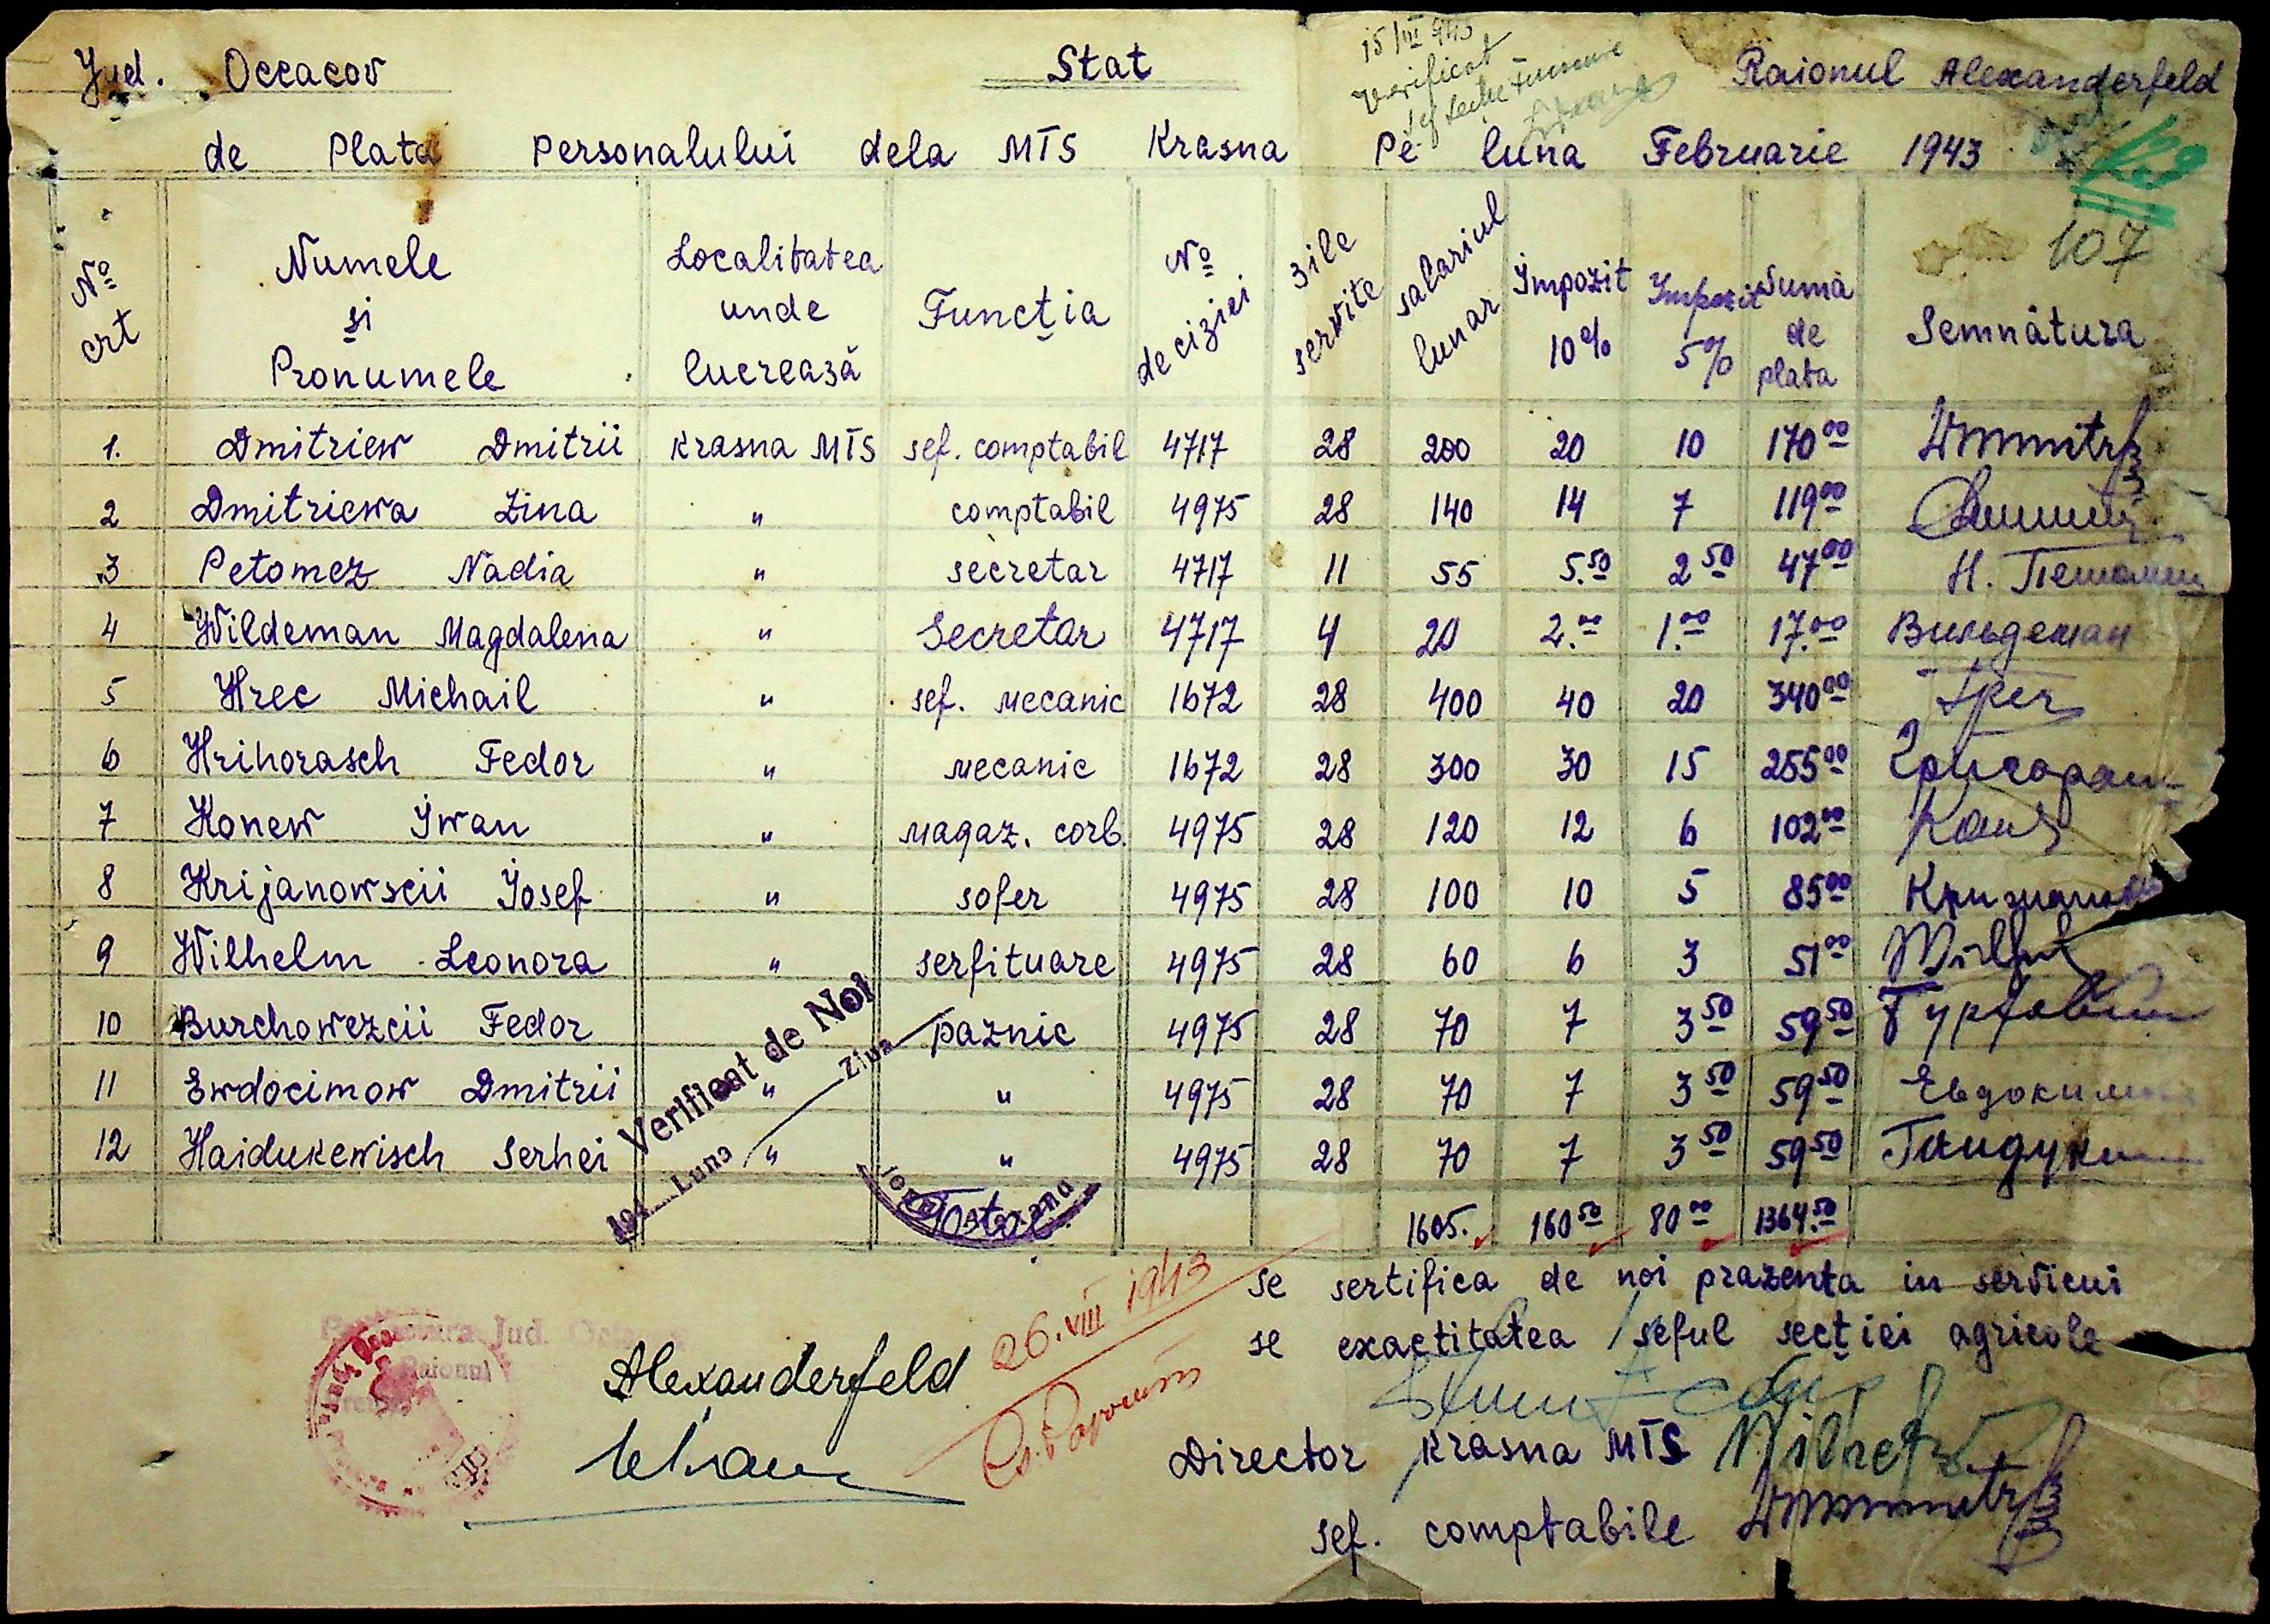 Jud. Occacov Stat Raionul Alexanderfeld
15/III 943
verificat
de Plata Personalului dela MTS Krasna Pe luna Februarie 1943
107
№ crt Numele si Pronumele Localitatea unde lucrează Funcția № deciziei zile servite salariul lunar Impozit 10% Impozit 5% Suma de plata Semnătura
1. Dmitriew Dmitrii Krasna MTS sef. comptabil 4717 28 200 20 10 170 00
2 Dmitriewa Zina " comptabil 4975 28 140 14 7 119 00
3 Petomez Nadia " secretar 4717 11 55 5.50 2 50 47 00 Н. Петомец
4 Wildeman Magdalena " Secretar 4717 4 20 2.00 1.00 17.00 Вильдеман
5 Hrec Michail " sef. mecanic 1672 28 400 40 20 340 00
6 Hrihorasch Fedor " mecanic 1672 28 300 30 15 255 00
7 Konew Iwan " magaz. corb. 4975 28 120 12 6 102 00
8 Krijanowscii Iosef " sofer 4975 28 100 10 5 85 00
9 Wilhelm Leonora " serfituare 4975 28 60 6 3 51 00
10 Burchowezcii Fedor paznic 4975 28 70 7 3 50 59 50
11 Ewdocimow Dmitrii " " 4975 28 70 7 3 50 59 50
12 Haidukewisch Serhei " " 4975 28 70 7 3 50 59 50
Verificat de Noi
194 Luna Ziua
Total 1605. 160 50 80 00 1364.50
se sertifica de noi prazenta in servicui
se exactitatea seful secției agricole
26.VIII 1943
Jud.
Raionul
Alexanderfeld
Director Krasna MTS
sef. comptabile